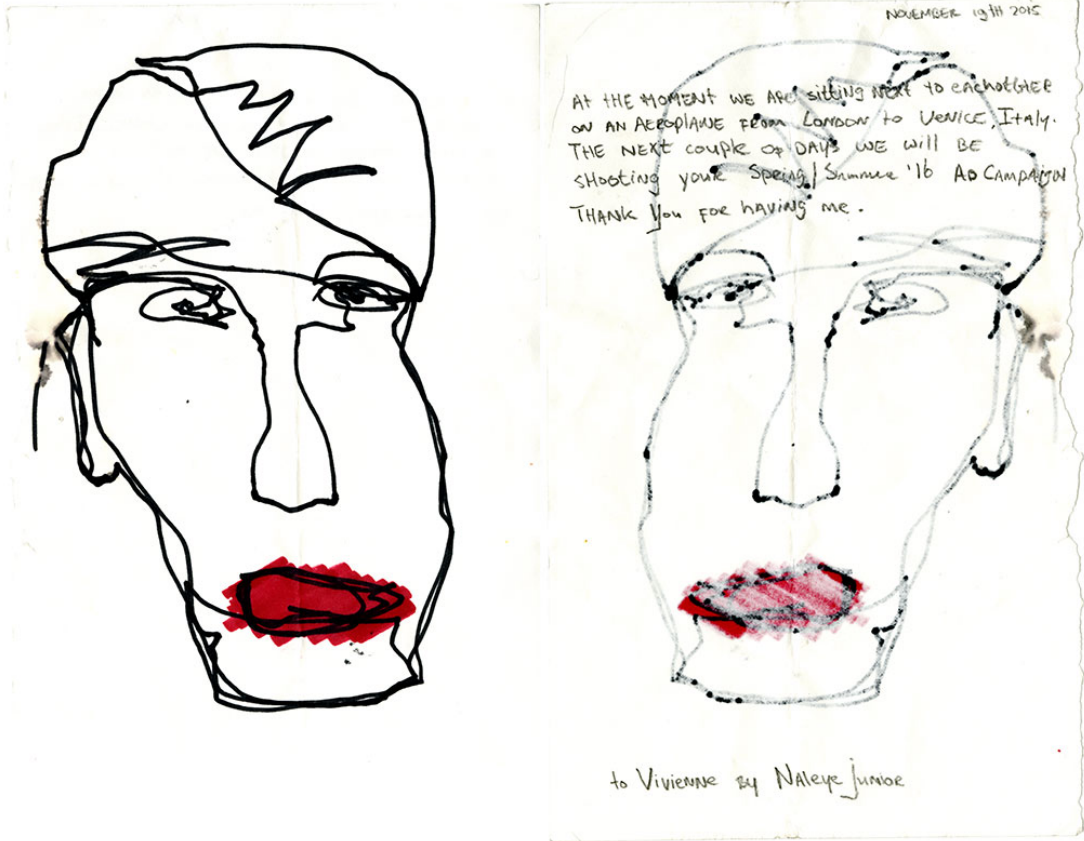 NOVEMBER 19TH 2015
At tHE MOMENT WE ARE sitting NEXT to EACHOTHER
ON AN AEROPLANE FROM LONDON to VENICE, Italy.
THE NEXt couple OF DAYS WE will BE
SHOOTING youR Spring/Summer '16 AD CAMPAIGN
THANK You FOR having me.
to Vivienne By Naleye Junior